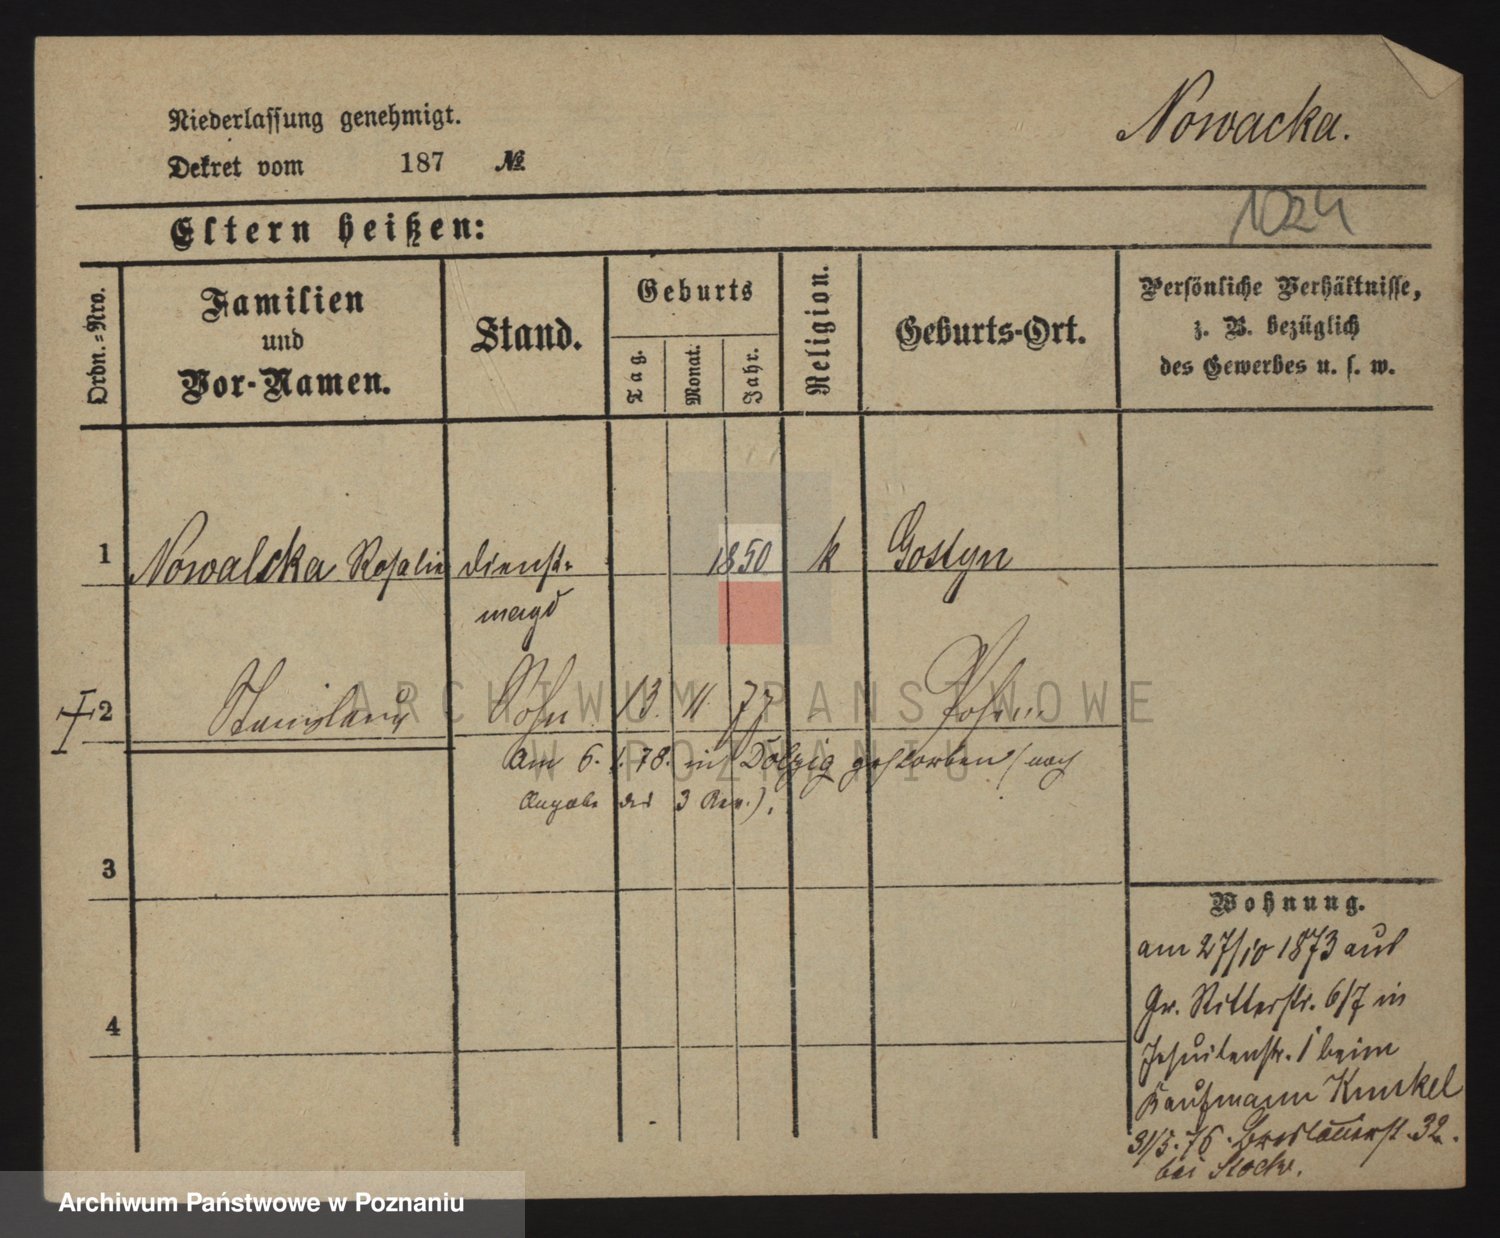 Niederlassung genehmigt.
Nowacka.
Dekret vom 187 №
1024
Eltern heißen:
Ordn.=Nro.
Familien
und
Vor-Namen.
Stand.
Geburts
Tag.
Monat.
Jahr.
Religion.
Geburts-Ort.
Persönliche Verhältnisse,
z. B. bezüglich
des Gewerbes u. s. w.
1 Nowalska Rosalie Dienst= 1850 k Gostyn
magd
2 Stanislaus Sohn 13. 11. 77 Posen
Am 6. 1. 78. in Dolzig gestorben (nach
Angabe des 3 Rev.).
3
4
Wohnung.
am 27/10 1873 aus
Gr. Ritterstr. 6/7 in
Jesuitenstr. 1 beim
Kaufmann Kunkel
31/5. 76. Breslauerst. 32.
bei
ARCHIWUM PAŃSTWOWE
W POZNANIU
Archiwum Państwowe w Poznaniu